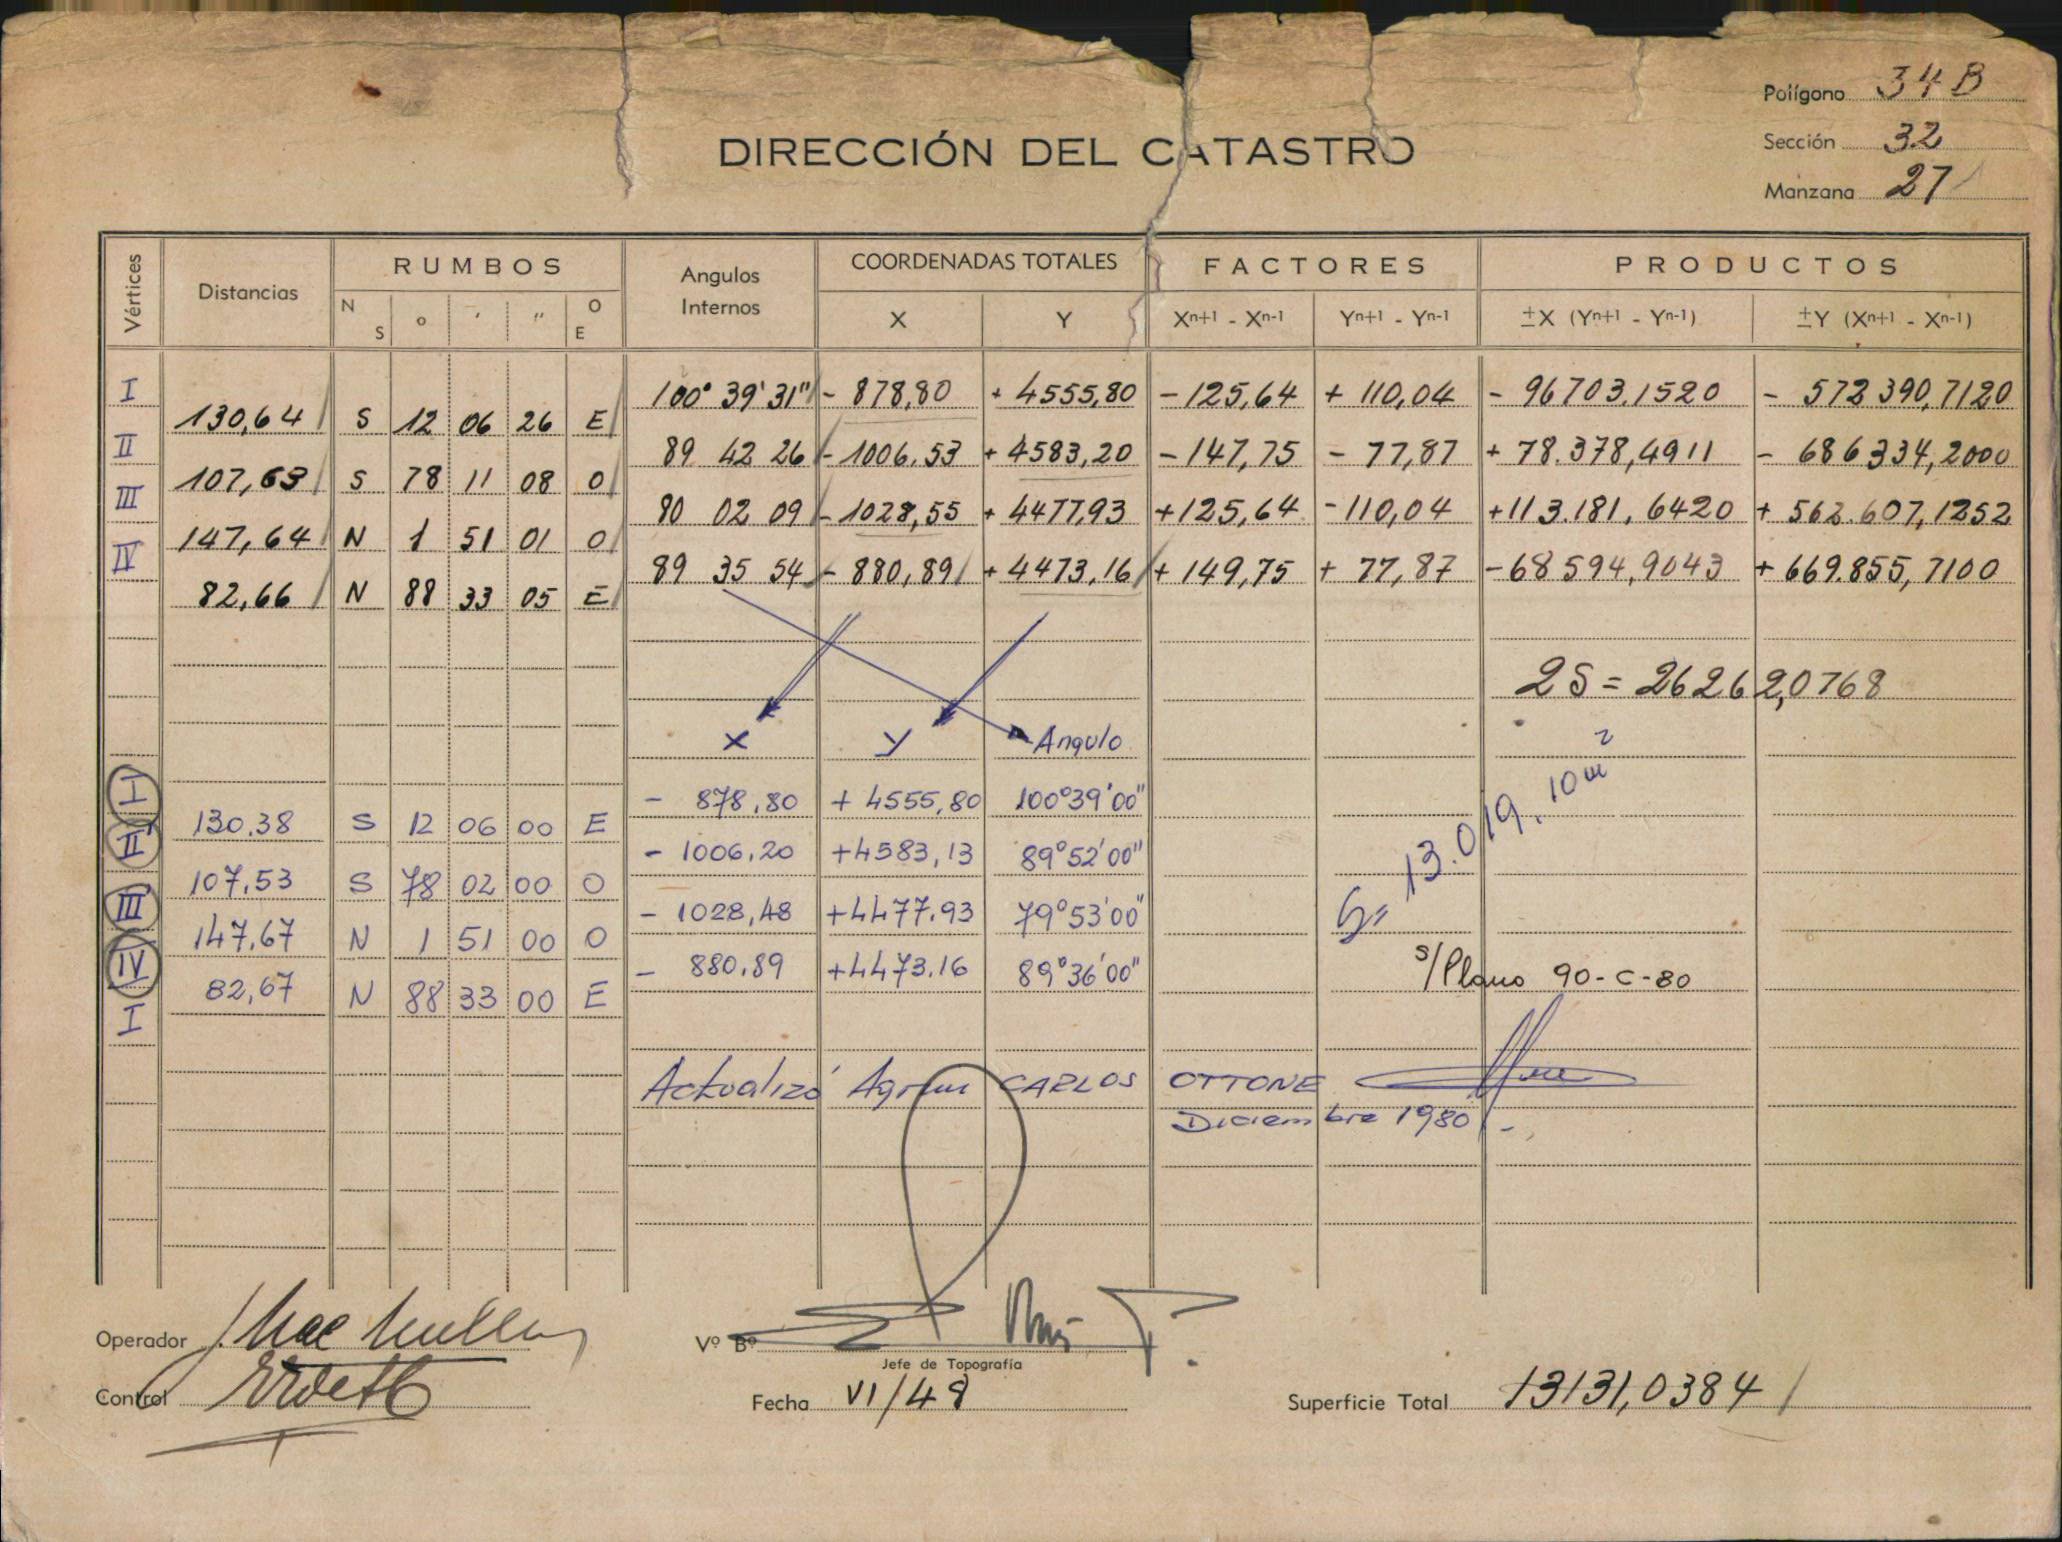 Polígono 34 B
Sección 32
Manzana 27
DIRECCIÓN DEL CATASTRO
Vértices Distancias RUMBOS Angulos Internos COORDENADAS TOTALES FACTORES PRODUCTOS
N S ° ' " O E X Y Xn+1 - Xn-1 Yn+1 - Yn-1 ±X (Yn+1 - Yn-1) ±Y (Xn+1 - Xn-1)
I 100° 39' 31" - 878,80 + 4555,80 - 125,64 + 110,04 - 96703,1520 - 572390,7120
130,64 S 12 06 26 E
II 89 42 26 - 1006,53 + 4583,20 - 147,75 - 77,87 + 78.378,4911 - 686334,2000
107,63 S 78 11 08 O
III 80 02 09 - 1028,55 + 4477,93 + 125,64 - 110,04 + 113.181,6420 + 562.607,1252
147,64 N 1 51 01 O
IV 89 35 54 - 880,89 + 4473,16 + 149,75 + 77,87 - 68594,9043 + 669.855,7100
82,66 N 88 33 05 E
2S = 26262,0768
X Y Angulo
I - 878,80 + 4555,80 100°39'00"
130,38 S 12 06 00 E
II - 1006,20 +4583,13 89°52'00"
107,53 S 78 02 00 O
III - 1028,48 +4477,93 79°53'00"
147,67 N 1 51 00 O
IV - 880,89 +4473,16 89°36'00"
82,67 N 88 33 00 E
I
S= 13.019,10 m2
s/Plano 90-C-80
Actualizó Agrim CARLOS OTTONE
Diciembre 1980.-
Operador
Vº Bº
Jefe de Topografía
Control
Fecha VI/48
Superficie Total 13131,0384